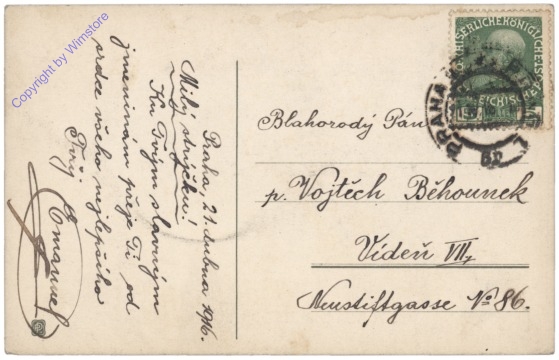 Praha, 21. dubna 1916.
Milý strýčku!
Ku Tvým slavným
jmeninám přeje Ti od
srdce všeho nejlepšího
Tvůj
Emanuel
Blahorodý Pán
p. Vojtěch Běhounek
Vídeň VII,
Neustiftgasse No 86.
KAISERLICHE KÖNIGLICHE
PRAHA
Copyright by Wimstore